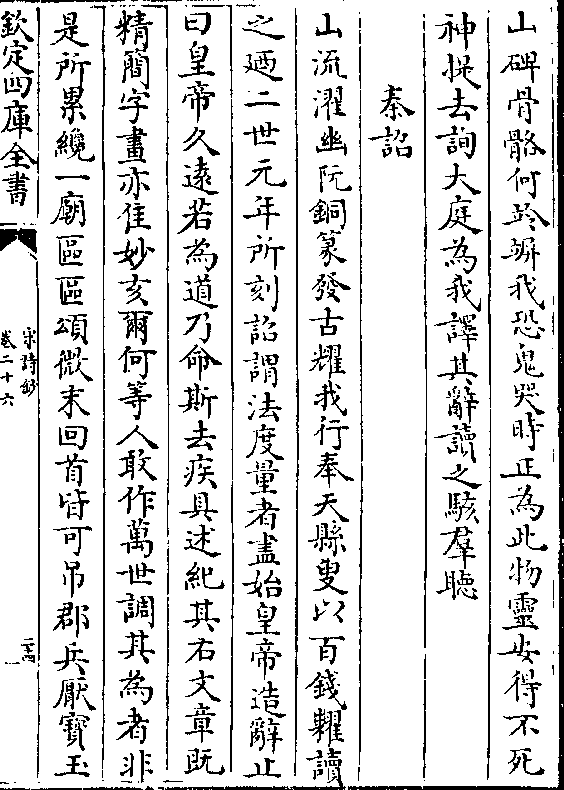 山碑骨骼何於辨我恐鬼哭時正為此物靈安得不死
神捉去詢大庭為我譯其辭讀之駭羣聽
秦詔
山流濯幽阬銅篆發古耀我行奉天縣叟以百錢糶讀
之廼二世元年所刻詔謂法度量者盡始皇帝造辭止
曰皇帝久遠若為道乃命斯去疾具述紀其右文章既
精簡字畫亦佳妙亥爾何等人敢作萬世調其為者非
是所累纔一廟區區頌微末回首皆可吊郡兵厭寶玉
欽定四庫全書
宋詩鈔
卷二十六